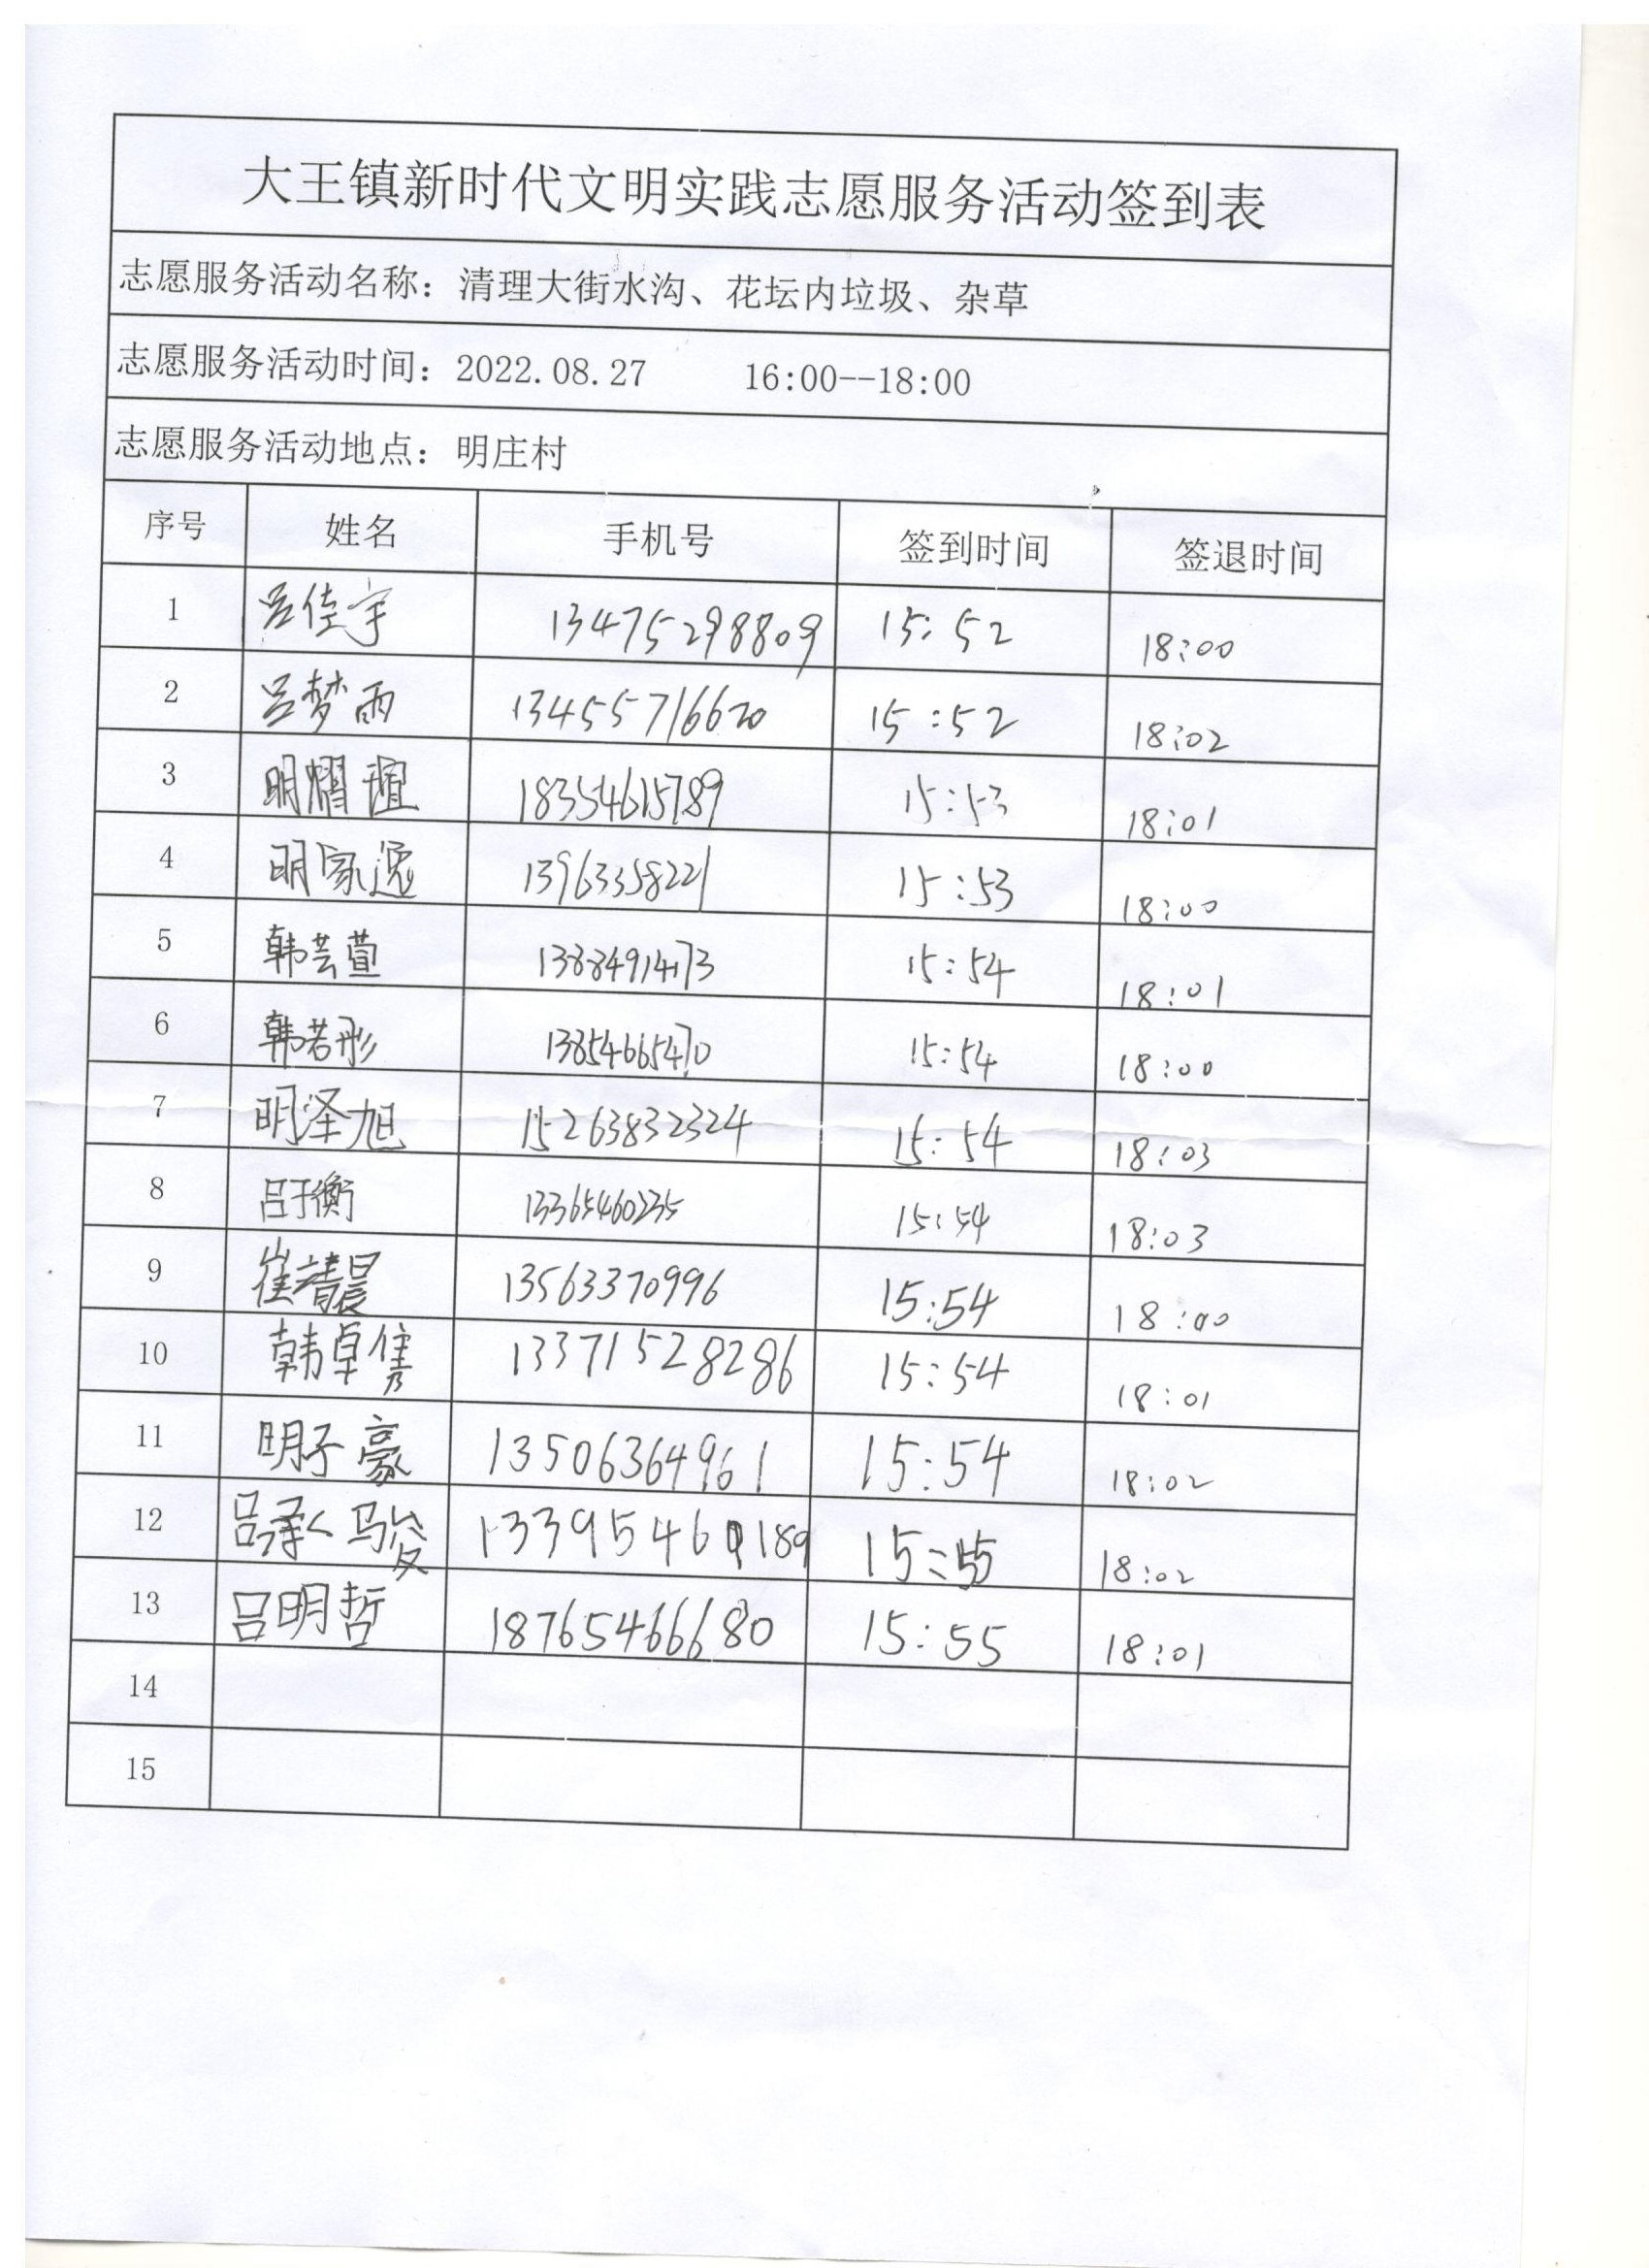 大王镇新时代文明实践志愿服务活动签到表
志愿服务活动名称：清理大街水沟、花坛内垃圾、杂草
志愿服务活动时间：2022.08.27 16:00--18:00
志愿服务活动地点：明庄村
序号 姓名 手机号 签到时间 签退时间
1 吕佳宇 13475298809 15:52 18:00
2 吕梦雨 13455716620 15:52 18:02
3 明耀 18354615789 15:53 18:01
4 明家逸 13963358221 15:53 18:00
5 韩芸萱 13884914173 15:54 18:01
6 韩若彤 13854665470 15:54 18:00
7 明泽旭 15263832324 15:54 18:03
8 吕于衡 13365460235 15:54 18:03
9 崔靖晨 13563370996 15:54 18:00
10 韩卓隽 13371528286 15:54 18:01
11 明子豪 13506364961 15:54 18:02
12 吕承骏 15:55 18:02
13 吕明哲 18765466680 15:55 18:01
14
15